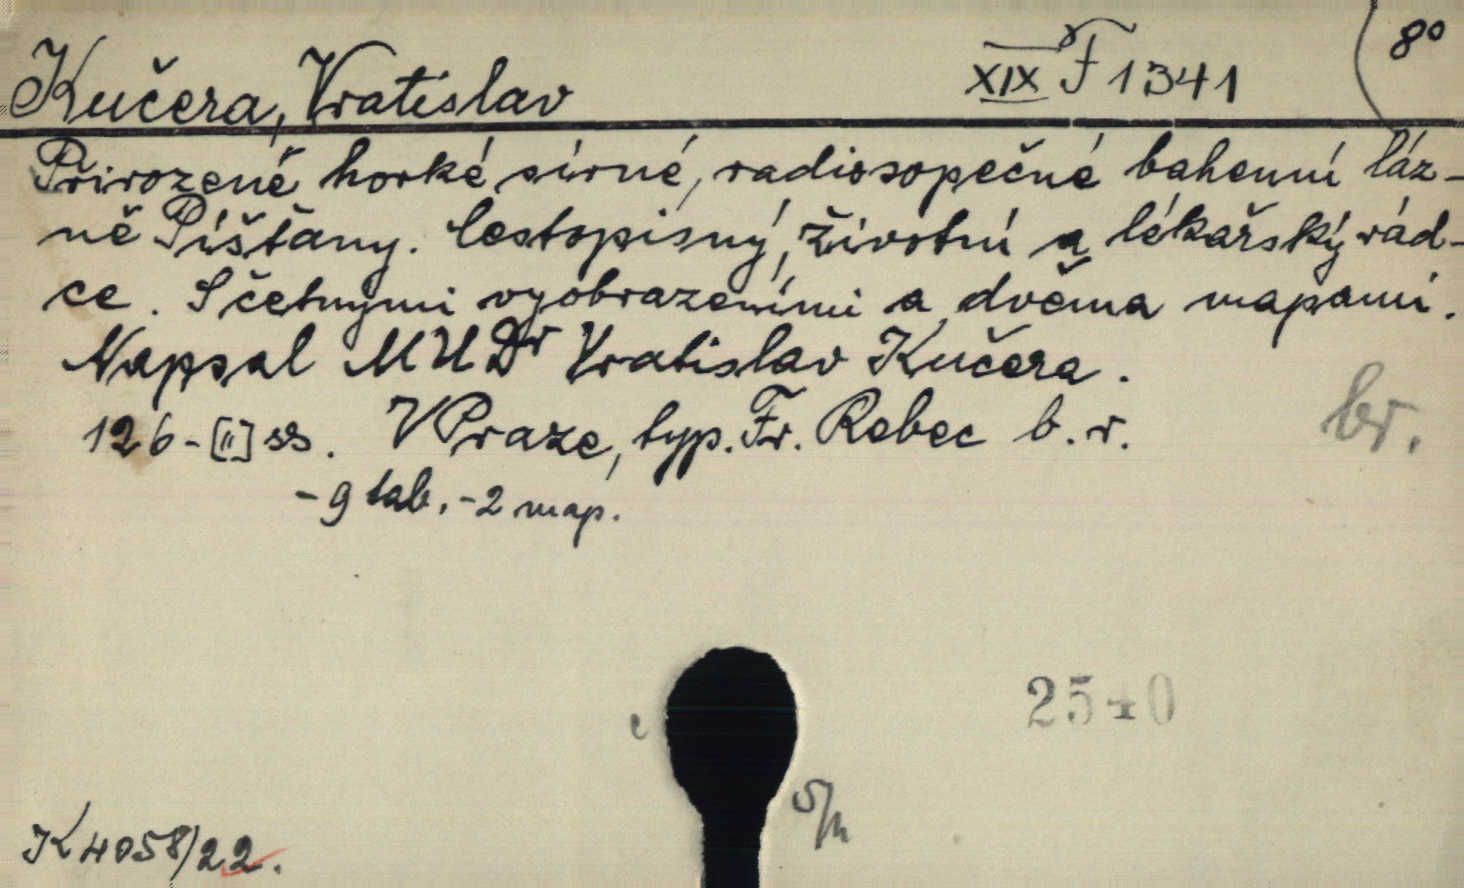 8°
XIX F 1341
Kučera, Vratislav
Přirozeně horké sirné, radiosopečné bahenní láz-
ně Píšťany. Cestopisný, životní a lékařský rád-
ce. S četnými vyobrazeními a dvěma mapami.
Napsal MUDr Vratislav Kučera.
126-[II] ss. V Praze, typ. Fr. Rebec b. r.
br.
-9 tab. -2 map.
2540
K 4058/22.